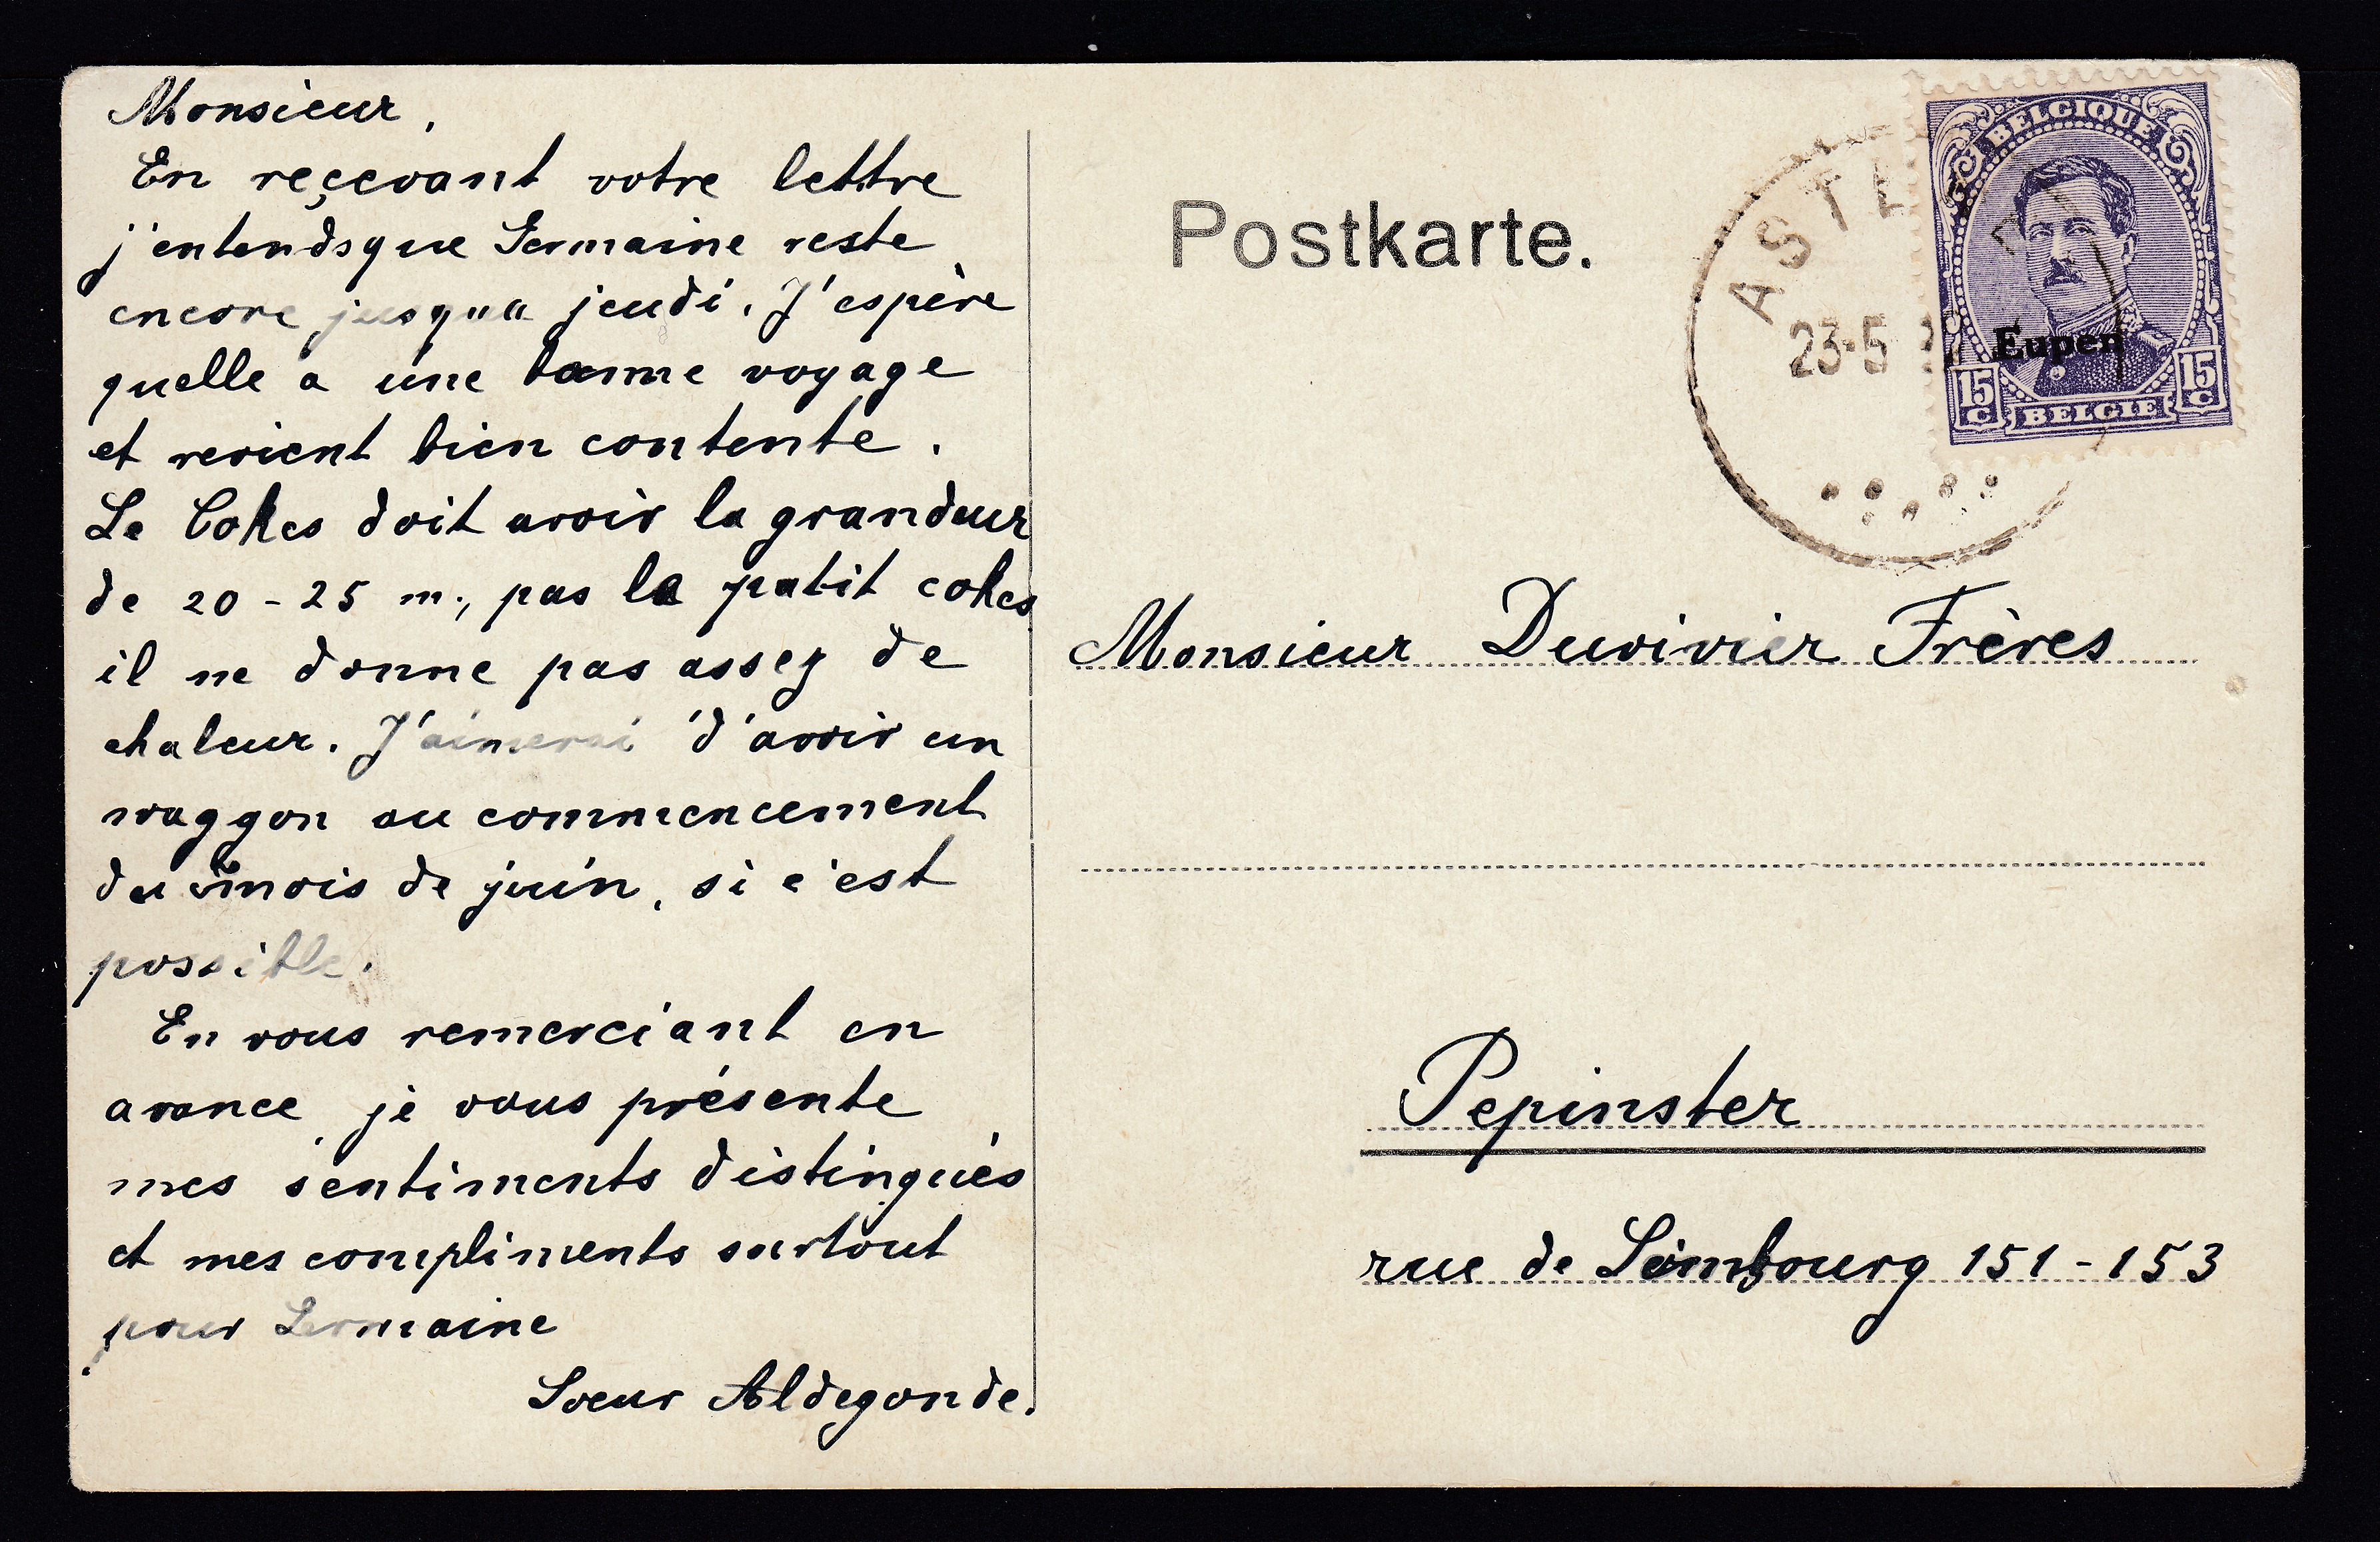 Monsieur,
En reçevant votre lettre
j'entendsque Germaine reste
encore jusqua jeudi. J'espère
quelle a une bonne voyage
et revient bien contente.
Le Cokes doit avoir la grandeur
de 20 - 25 m., pas le petit cokes
il ne donne pas assez de
chaleur. J'aimerai d'avoir un
waggon au commencement
du mois de juin, si c'est
possible.
En vous remerciant en
avance, je vous présente
mes sentiments distingués
et mes compliments surtout
pour Germaine
Soeur Aldegonde.
Postkarte.
23-5
BELGIQUE
Eupen
15 C
15 C
BELGIE
Monsieur Duvivier Frères
Pepinster
rue de Limbourg 151 - 153